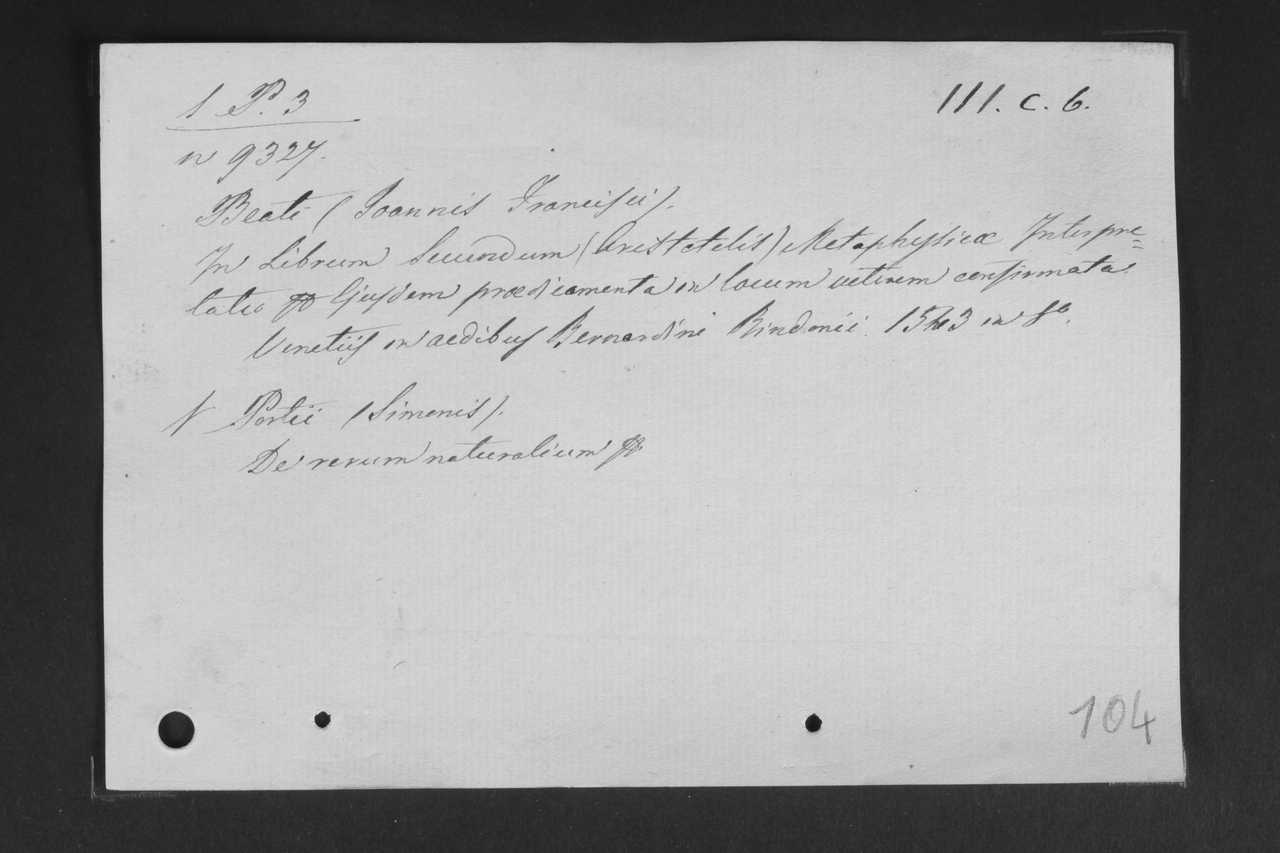 1 P. 3
III. c. 6.
n 9327.
Beati (Joannis Francisci).
In Librum Secundum (Aristotelis) Metaphysicæ Interpre=
tatio Ejusdem prædicamenta in locum veterem confirmata.
Venetiis in aedibus Bernardini Bindonii. 1543 in 8o.
V Portii (Simonis).
De rerum naturalium
104